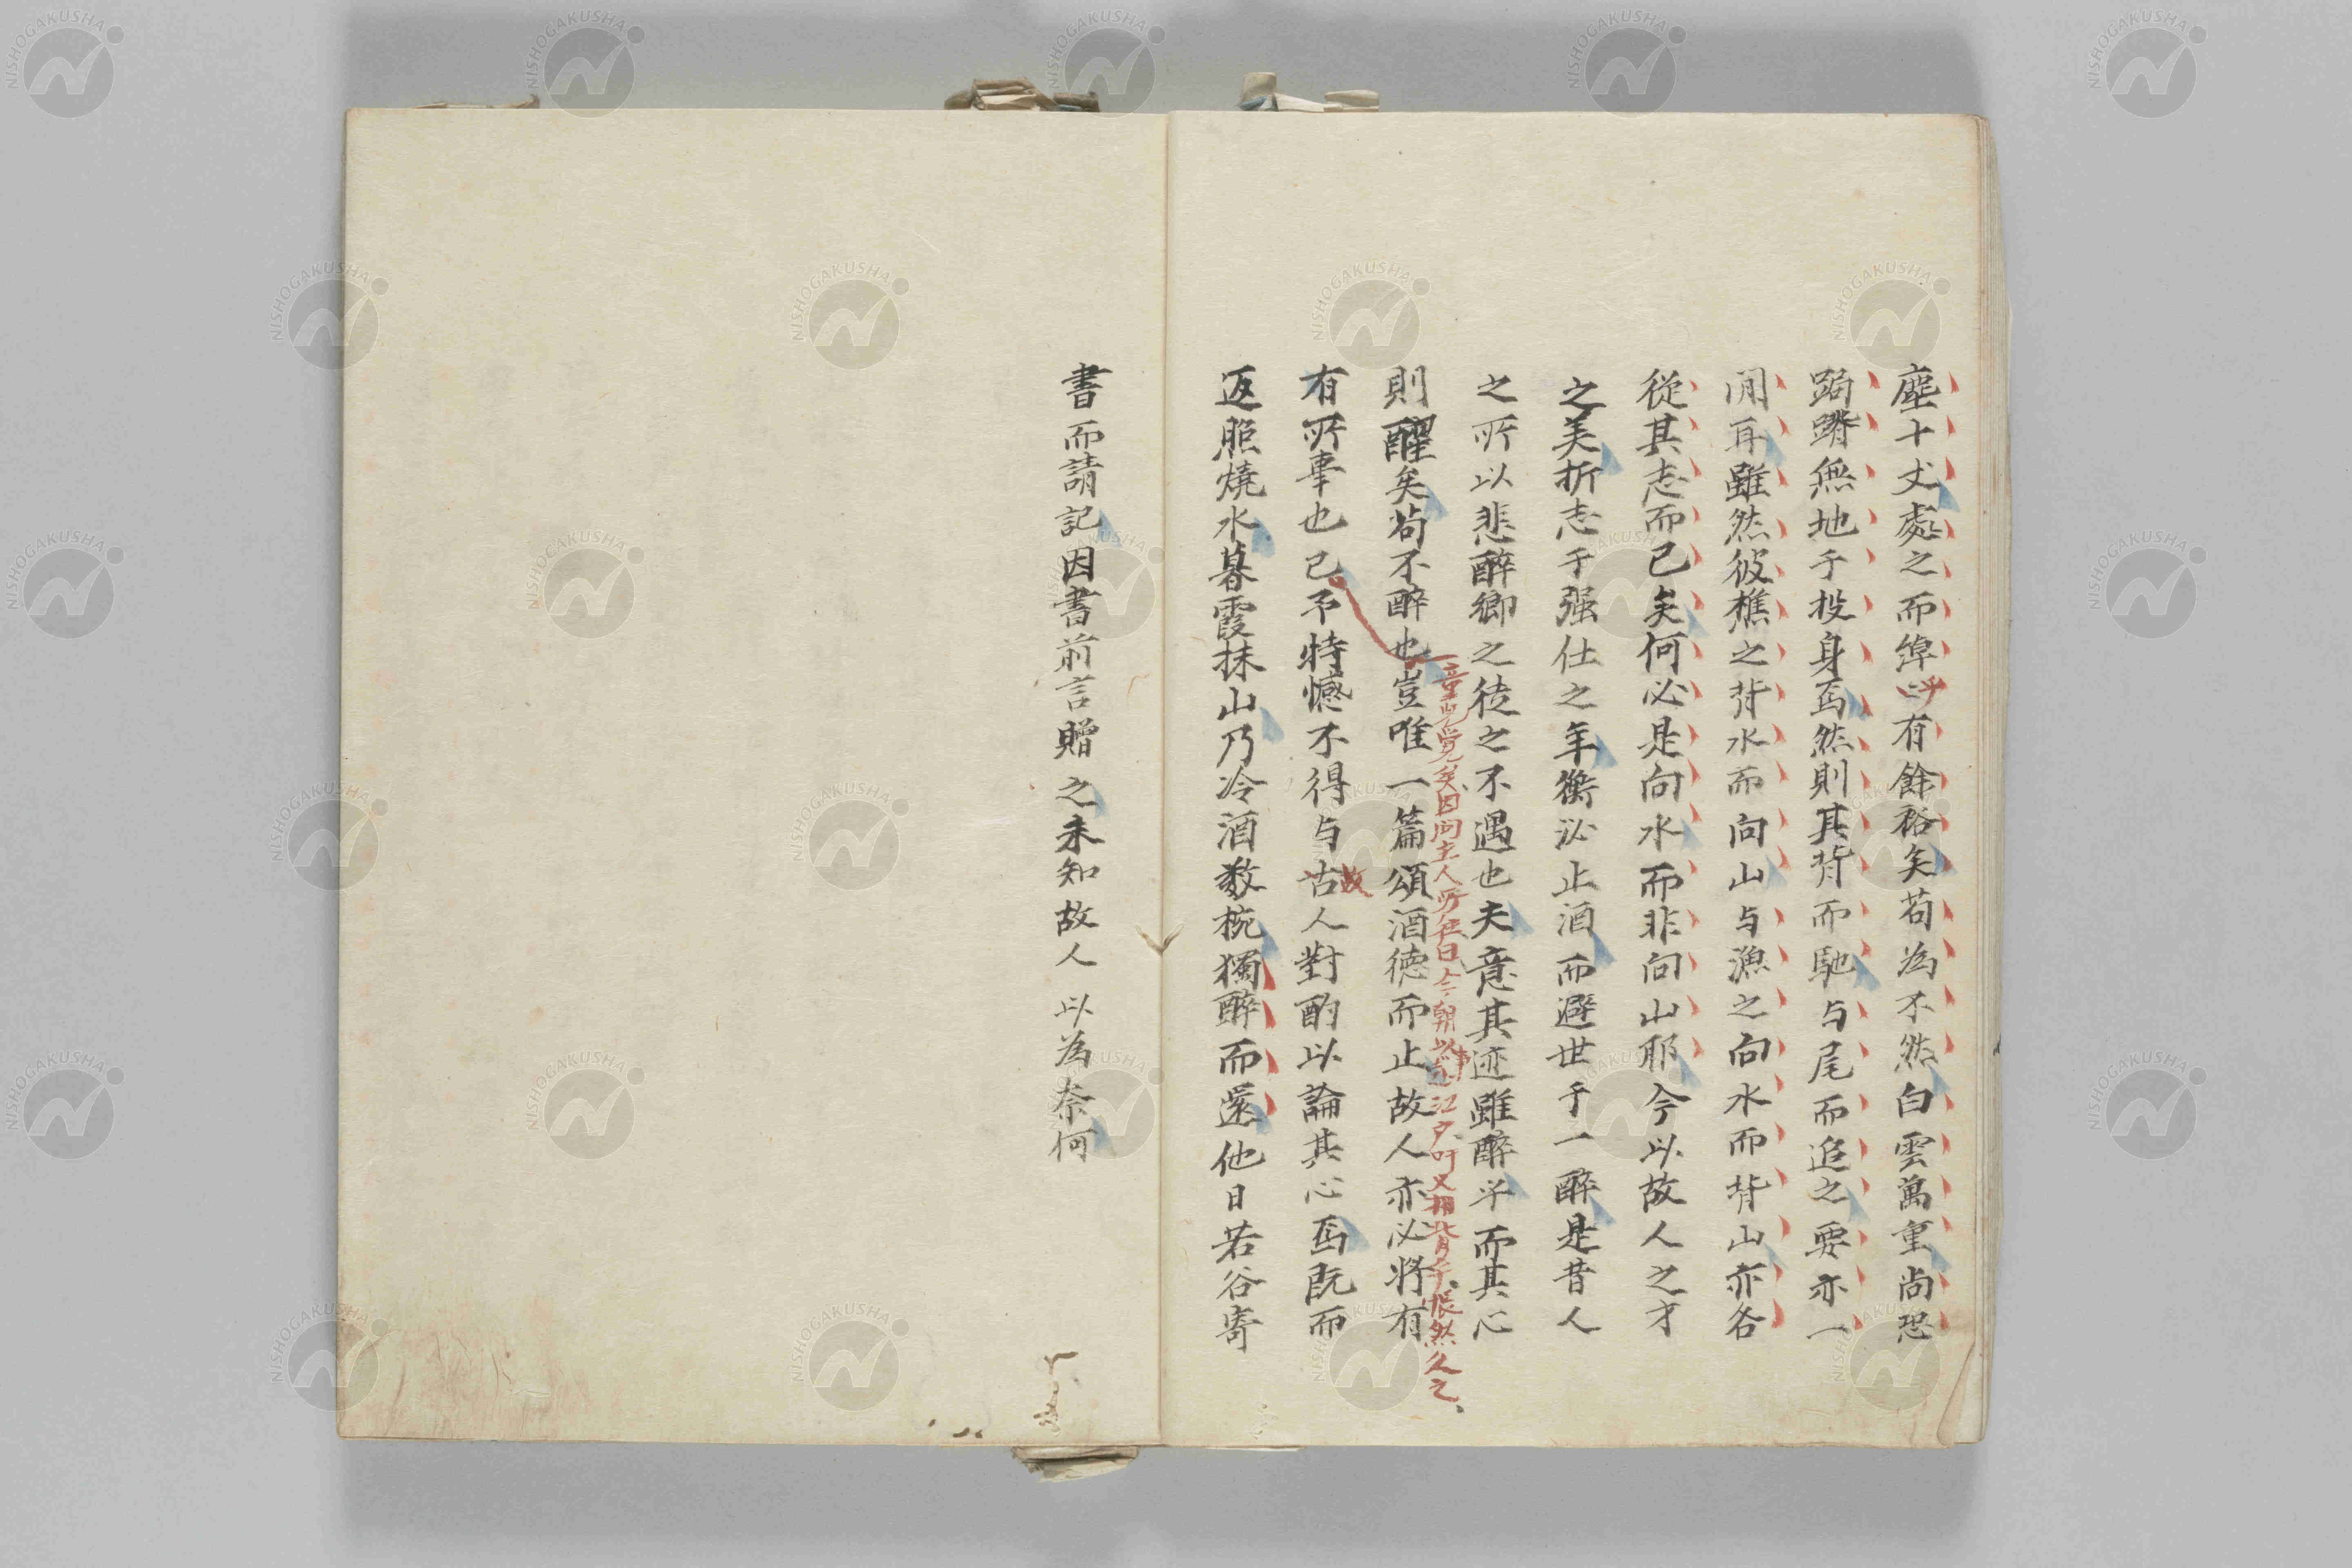 塵十丈處之而綽〻乎有餘裕矣苟為不然白雲萬重尚恐
跼蹐無地于投身焉然則其背而馳与尾而追之要亦一
間耳雖然彼樵之背水而向山与漁之向水而背山亦各
從其志而已矣何必是向水而非向山耶今以故人之才
之美折志于强仕之年衡泌止酒而避世于一醉是昔人
之所以悲醉鄉之徒之不遇也夫意其迹雖醉乎而其心
童児覚矣因問主人所在曰今朝以事之江戸吁又相背乎悵然久之
則醒矣苟不醉也豈唯一篇頌酒徳而止故人亦必将有
有所事也已予特憾不得与古人對酌以論其心焉既而
故
返照燒水暮霞抹山乃冷酒數椀獨醉而還他日若谷寄
書而請記因書前言贈之未知故人以為奈何
NISHOGAKUSHA